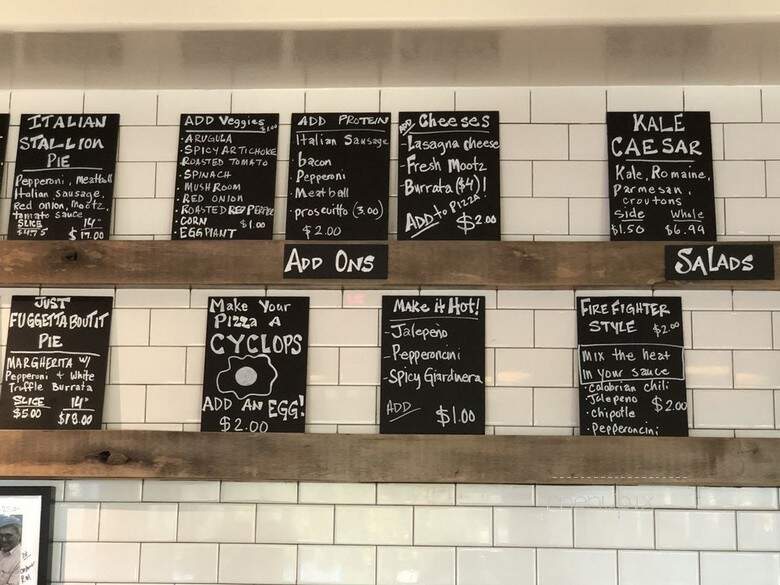 ITALIAN
STALLION
PIE
Pepperoni, Meatball
Italian Sausage,
Red onion, Mootz,
tomato sauce
SLICE 14"
$4.75 $17.00
ADD Veggies $1.00
· ARUGULA
· SPICY ARTICHOKE
· ROASTED TOMATO
· SPINACH
· MUSHROOM
· RED ONION
· ROASTED RED PEPPER
· CORN $1.00
· EGGPLANT
ADD PROTEIN
Italian Sausage
bacon
Pepperoni
Meatball
prosciutto (3.00)
$2.00
ADD Cheeses
- Lasagna cheese
- Fresh Mootz
- Burrata ($4)!
ADD to PIZZA
$2.00
KALE
CAESAR
Kale, Romaine,
Parmesan,
croutons
Side Whole
$1.50 $6.99
ADD ONS
SALADS
JUST
FUGGETTABOUTIT
PIE
MARGHERITA w/
Pepperoni + White
Truffle Burrata
SLICE 14"
$5.00 $18.00
Make Your
Pizza A
CYCLOPS
ADD AN EGG!
$2.00
Make it Hot!
- Jalapeño
- Pepperoncini
- Spicy Giardinera
ADD $1.00
FIREFIGHTER
STYLE $2.00
Mix the heat
in your sauce
· Calabrian chili
· Jalepeno $2.00
· chipotle
· Pepperoncini